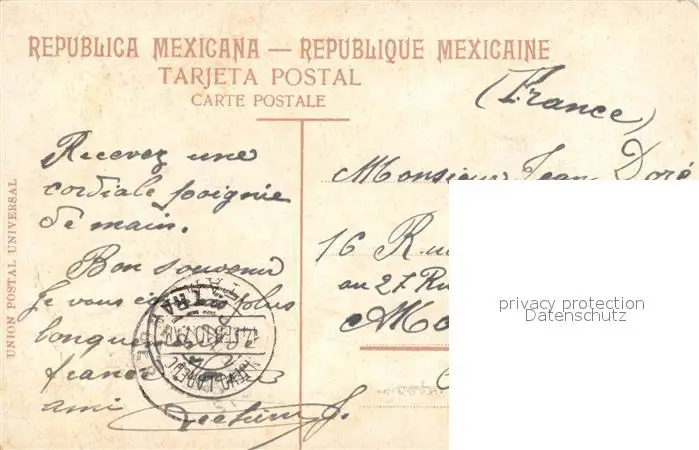 REPUBLICA MEXICANA — REPUBLIQUE MEXICAINE
TARJETA POSTAL
CARTE POSTALE
(France)
UNION POSTAL UNIVERSAL
Recevez une
cordiale poignie
de main.
Bon souvenir
Je vous plus
longuement
franc
ami
Monsieur Jean Doré
16 Rue
au 27 Ru
privacy protection
Datenschutz